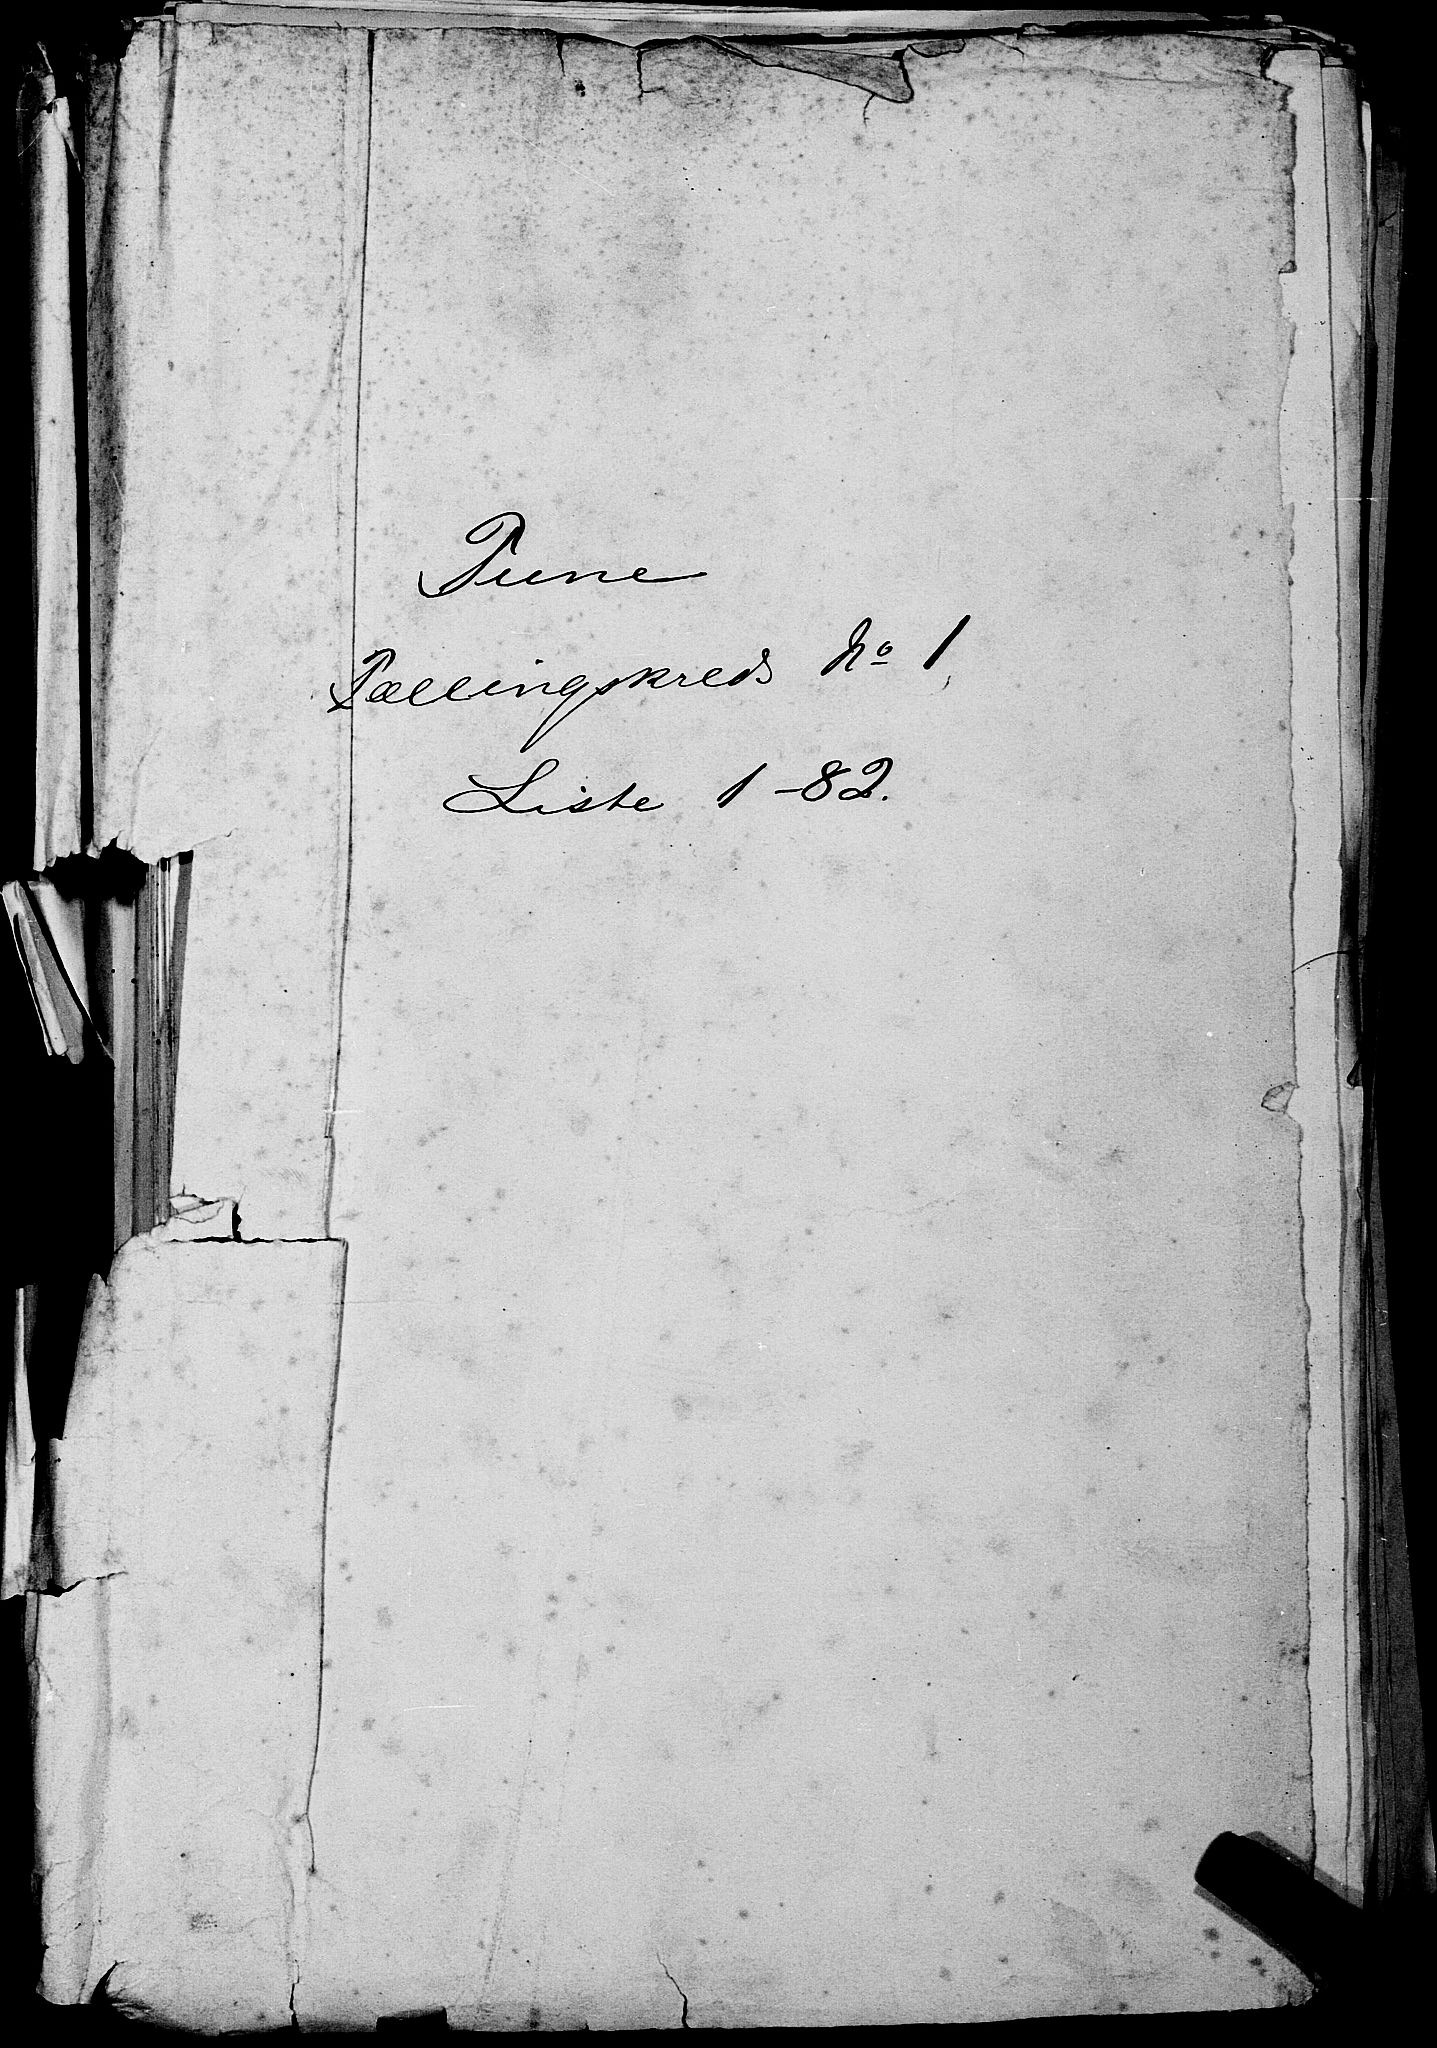 Tune
Tællingskreds No 1
Liste 1-82.